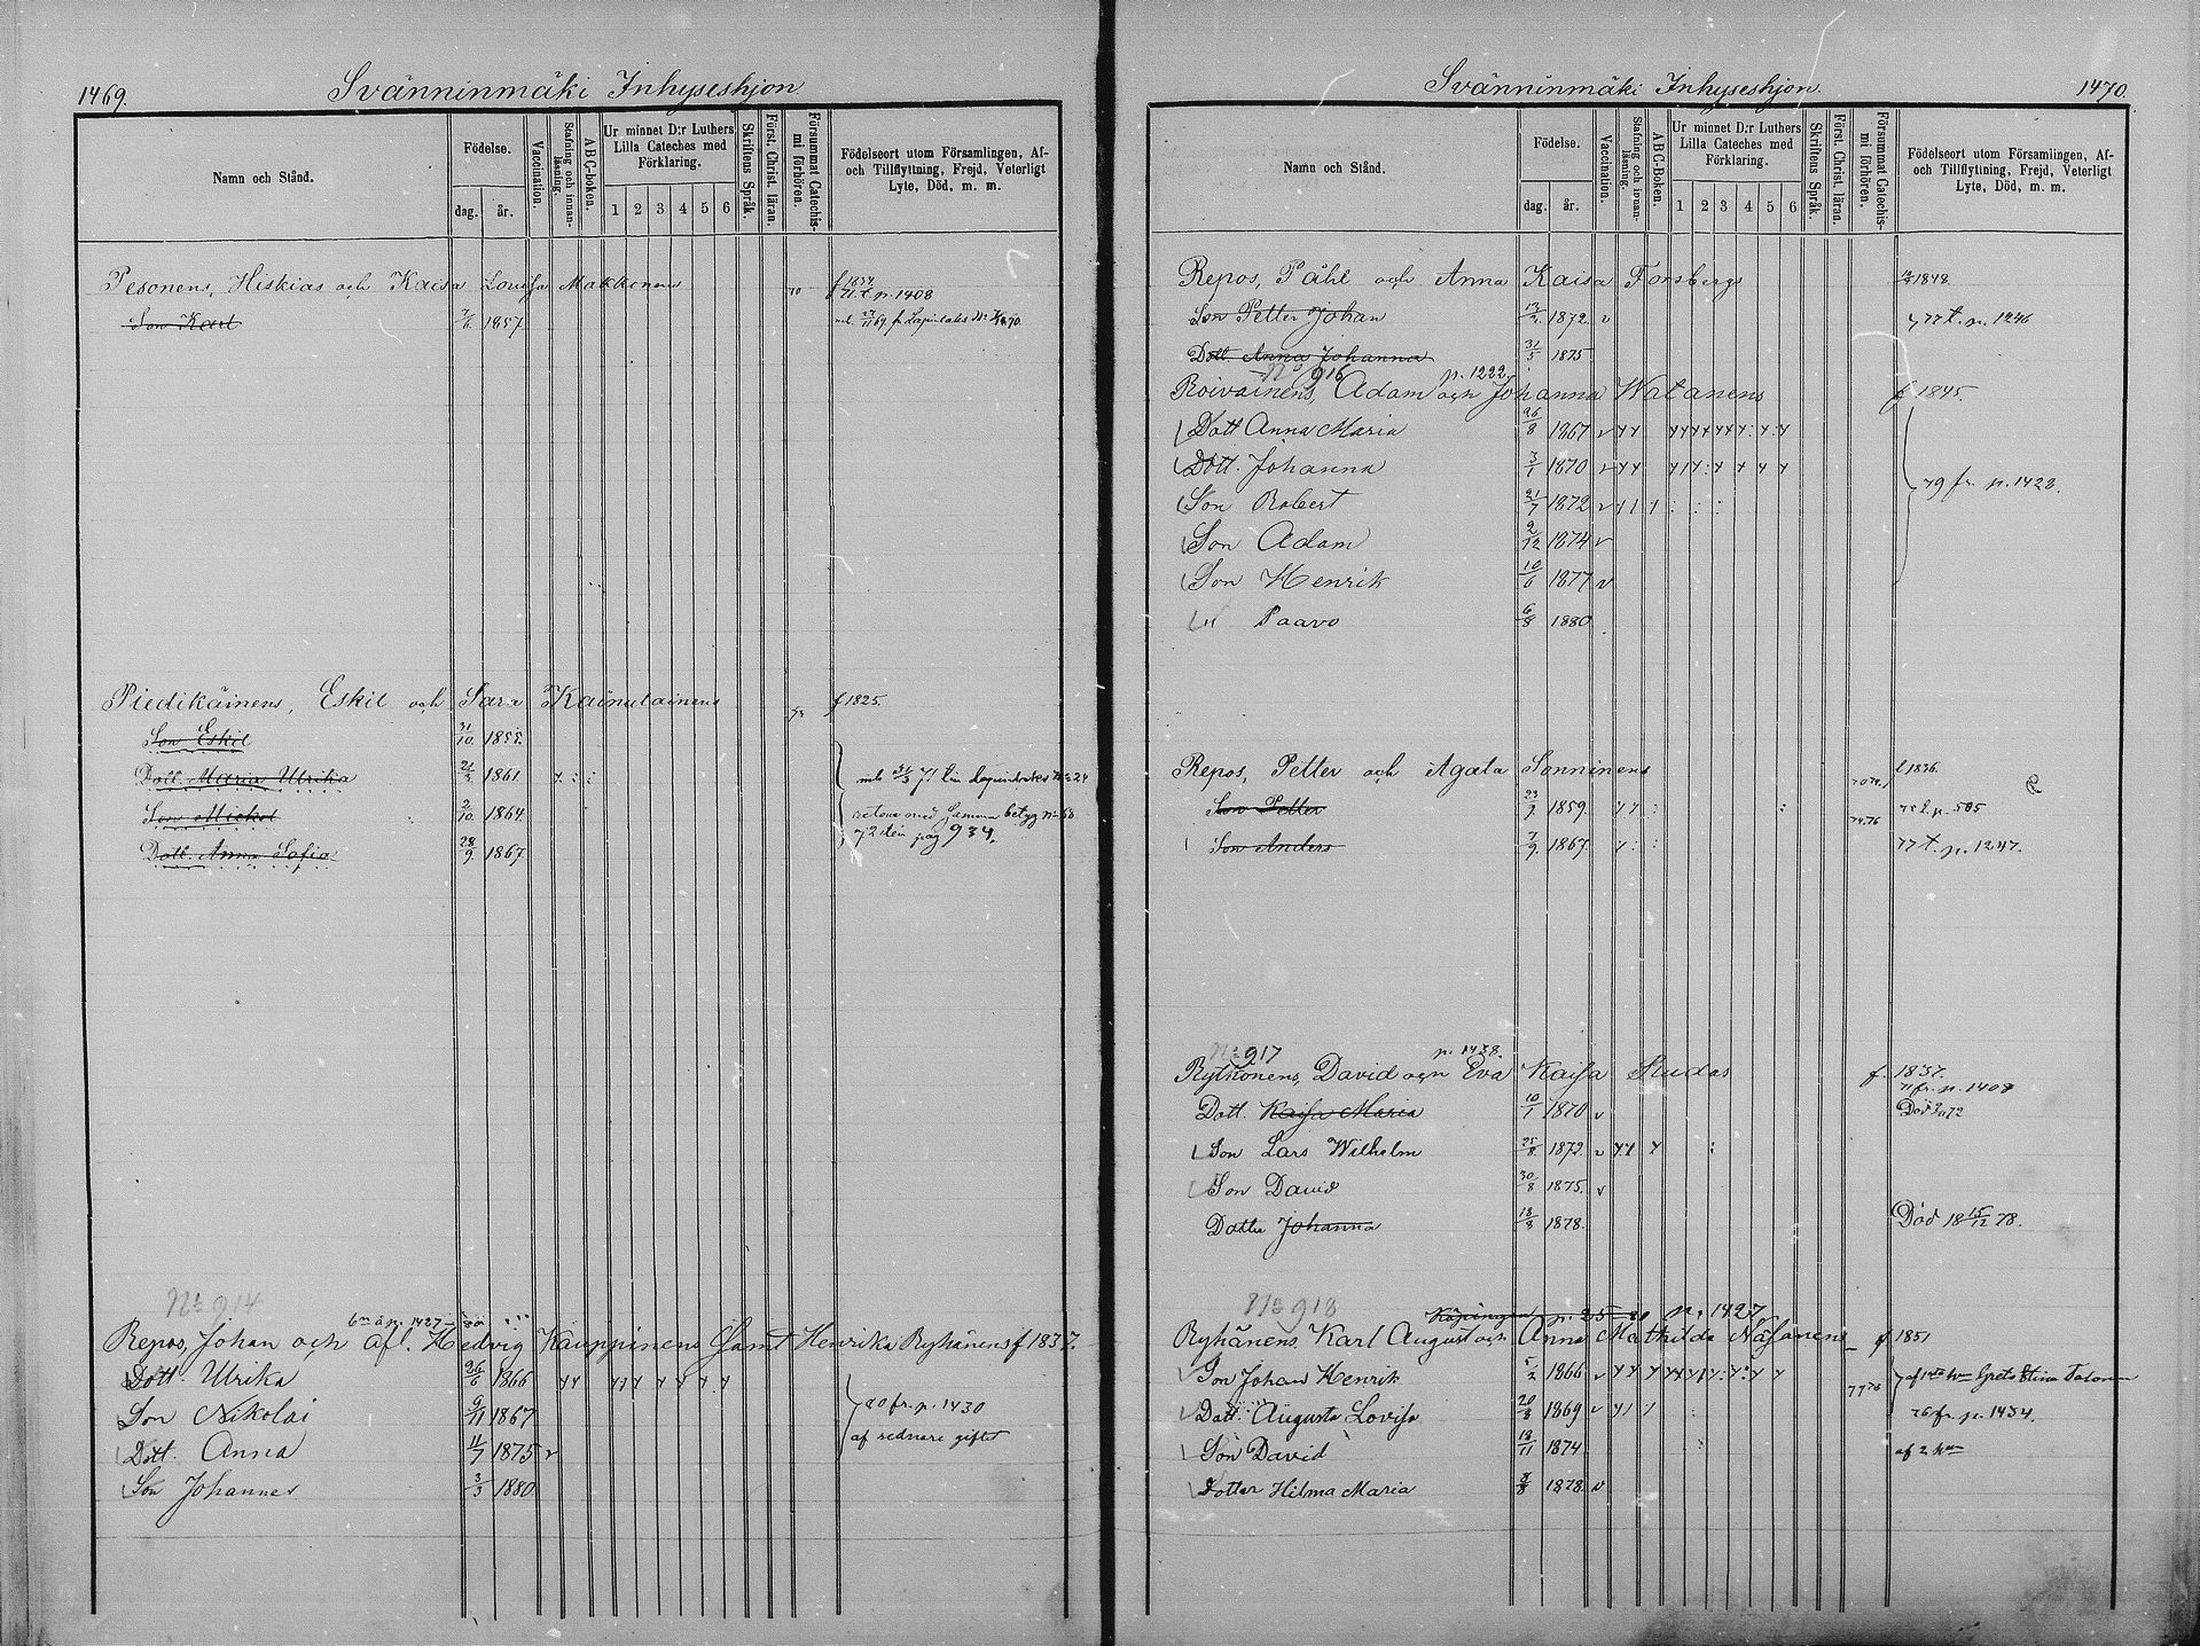 1469.
Svänninmäki Inhyseshjon
Namn och Stånd.
Födelse.
dag. år.
Vaccination.
Stafning och innanläsning.
ABC-boken.
Ur minnet D:r Luthers Lilla Cateches med Förklaring.
1 2 3 4 5 6
Skriftens Språk.
Först. Christ. läran.
Försummat Catechismi förhören.
Födelseort utom Församlingen, Af- och Tillflyttning, Frejd, Veterligt Lyte, Död, m. m.
Pesonens, Hiskias och Kaisa Lovisa Makkonens 70 f 1834.
71. t. p. 1408
Son Karl 7/6. 1857
Piedikäinens, Eskil och Sara Kainulainens f 1825.
Son Eskil 31/10. 1855.
Dott. Maria Ulrika 21/3. 1861
Son Mickel 2/10. 1864.
retour med samma betyg
72 pag 934.
Dott. Anna Sofia 28/9 1867.
No 914
p. 1427
Repos, Johan och afl. Hedvig Kauppinens samt Henrika Ryhänens f 1837.
Dott. Ulrika 26/6 1866
Son Nikolai 9/11 1867
80 fr. p. 1430
Dott. Anna 11/7 1875 v
af sednare giftet
Son Johannes 3/3 1880
Svänninmäki Inhyseshjon.
1470.
Namn och Stånd.
Födelse.
dag. år.
Vaccination.
Stafning och innanläsning.
ABC-Boken.
Ur minnet D:r Luthers Lilla Cateches med Förklaring.
1 2 3 4 5 6
Skriftens Språk.
Först. Christ. läran.
Försummat Catechismi förhören.
Födelseort utom Församlingen, Af- och Tillflyttning, Frejd, Veterligt Lyte, Död, m. m.
Repos, Påhl och Anna Kaisa Forsbergs 1848.
Son Petter Johan 1872. v 77 t. p. 1246
Dott. Anna Johanna 31/5 1875
No 916 p. 1222.
Roivainens, Adam och Johanna Watanens f 1845.
Dott Anna Maria 26/8 1867 v
Dott. Johanna 3/1 1870 v
79 fr. p. 1428.
Son Robert 21/7 1872 v
Son Adam 2/12 1874 v
Son Henrik 10/6 1877 v
" Paavo 6/8 1880
Repos, Petter och Agata Sonninens f 1836.
Son Petter 23/9. 1859. p. 505
74.76
Son Anders 7/9. 1867. 77 t. p. 1247.
No 917 p. 1438.
Rytkönens, David och Eva Kaisa Rudas f. 1837.
71 fr. p. 1407
Dott. Kaisa Maria 10/1 1870 v
Son Lars Wilhelm 25/8. 1872. v
Son David 30/8 1875. v
Dotter Johanna 18/8 1878. Död 18 15/12 78.
No 918
p. 1427
Ryhänens Karl August och Anna Mathilda Näsänens f 1851
Son Johan Henrik 5/2 1866 v
Dott. Augusta Lovisa 20/8 1869 v 76 fr. p. 1434.
Son David 18/11 1874. af 2 hm
Dotter Hilma Maria 8/8 1878. v